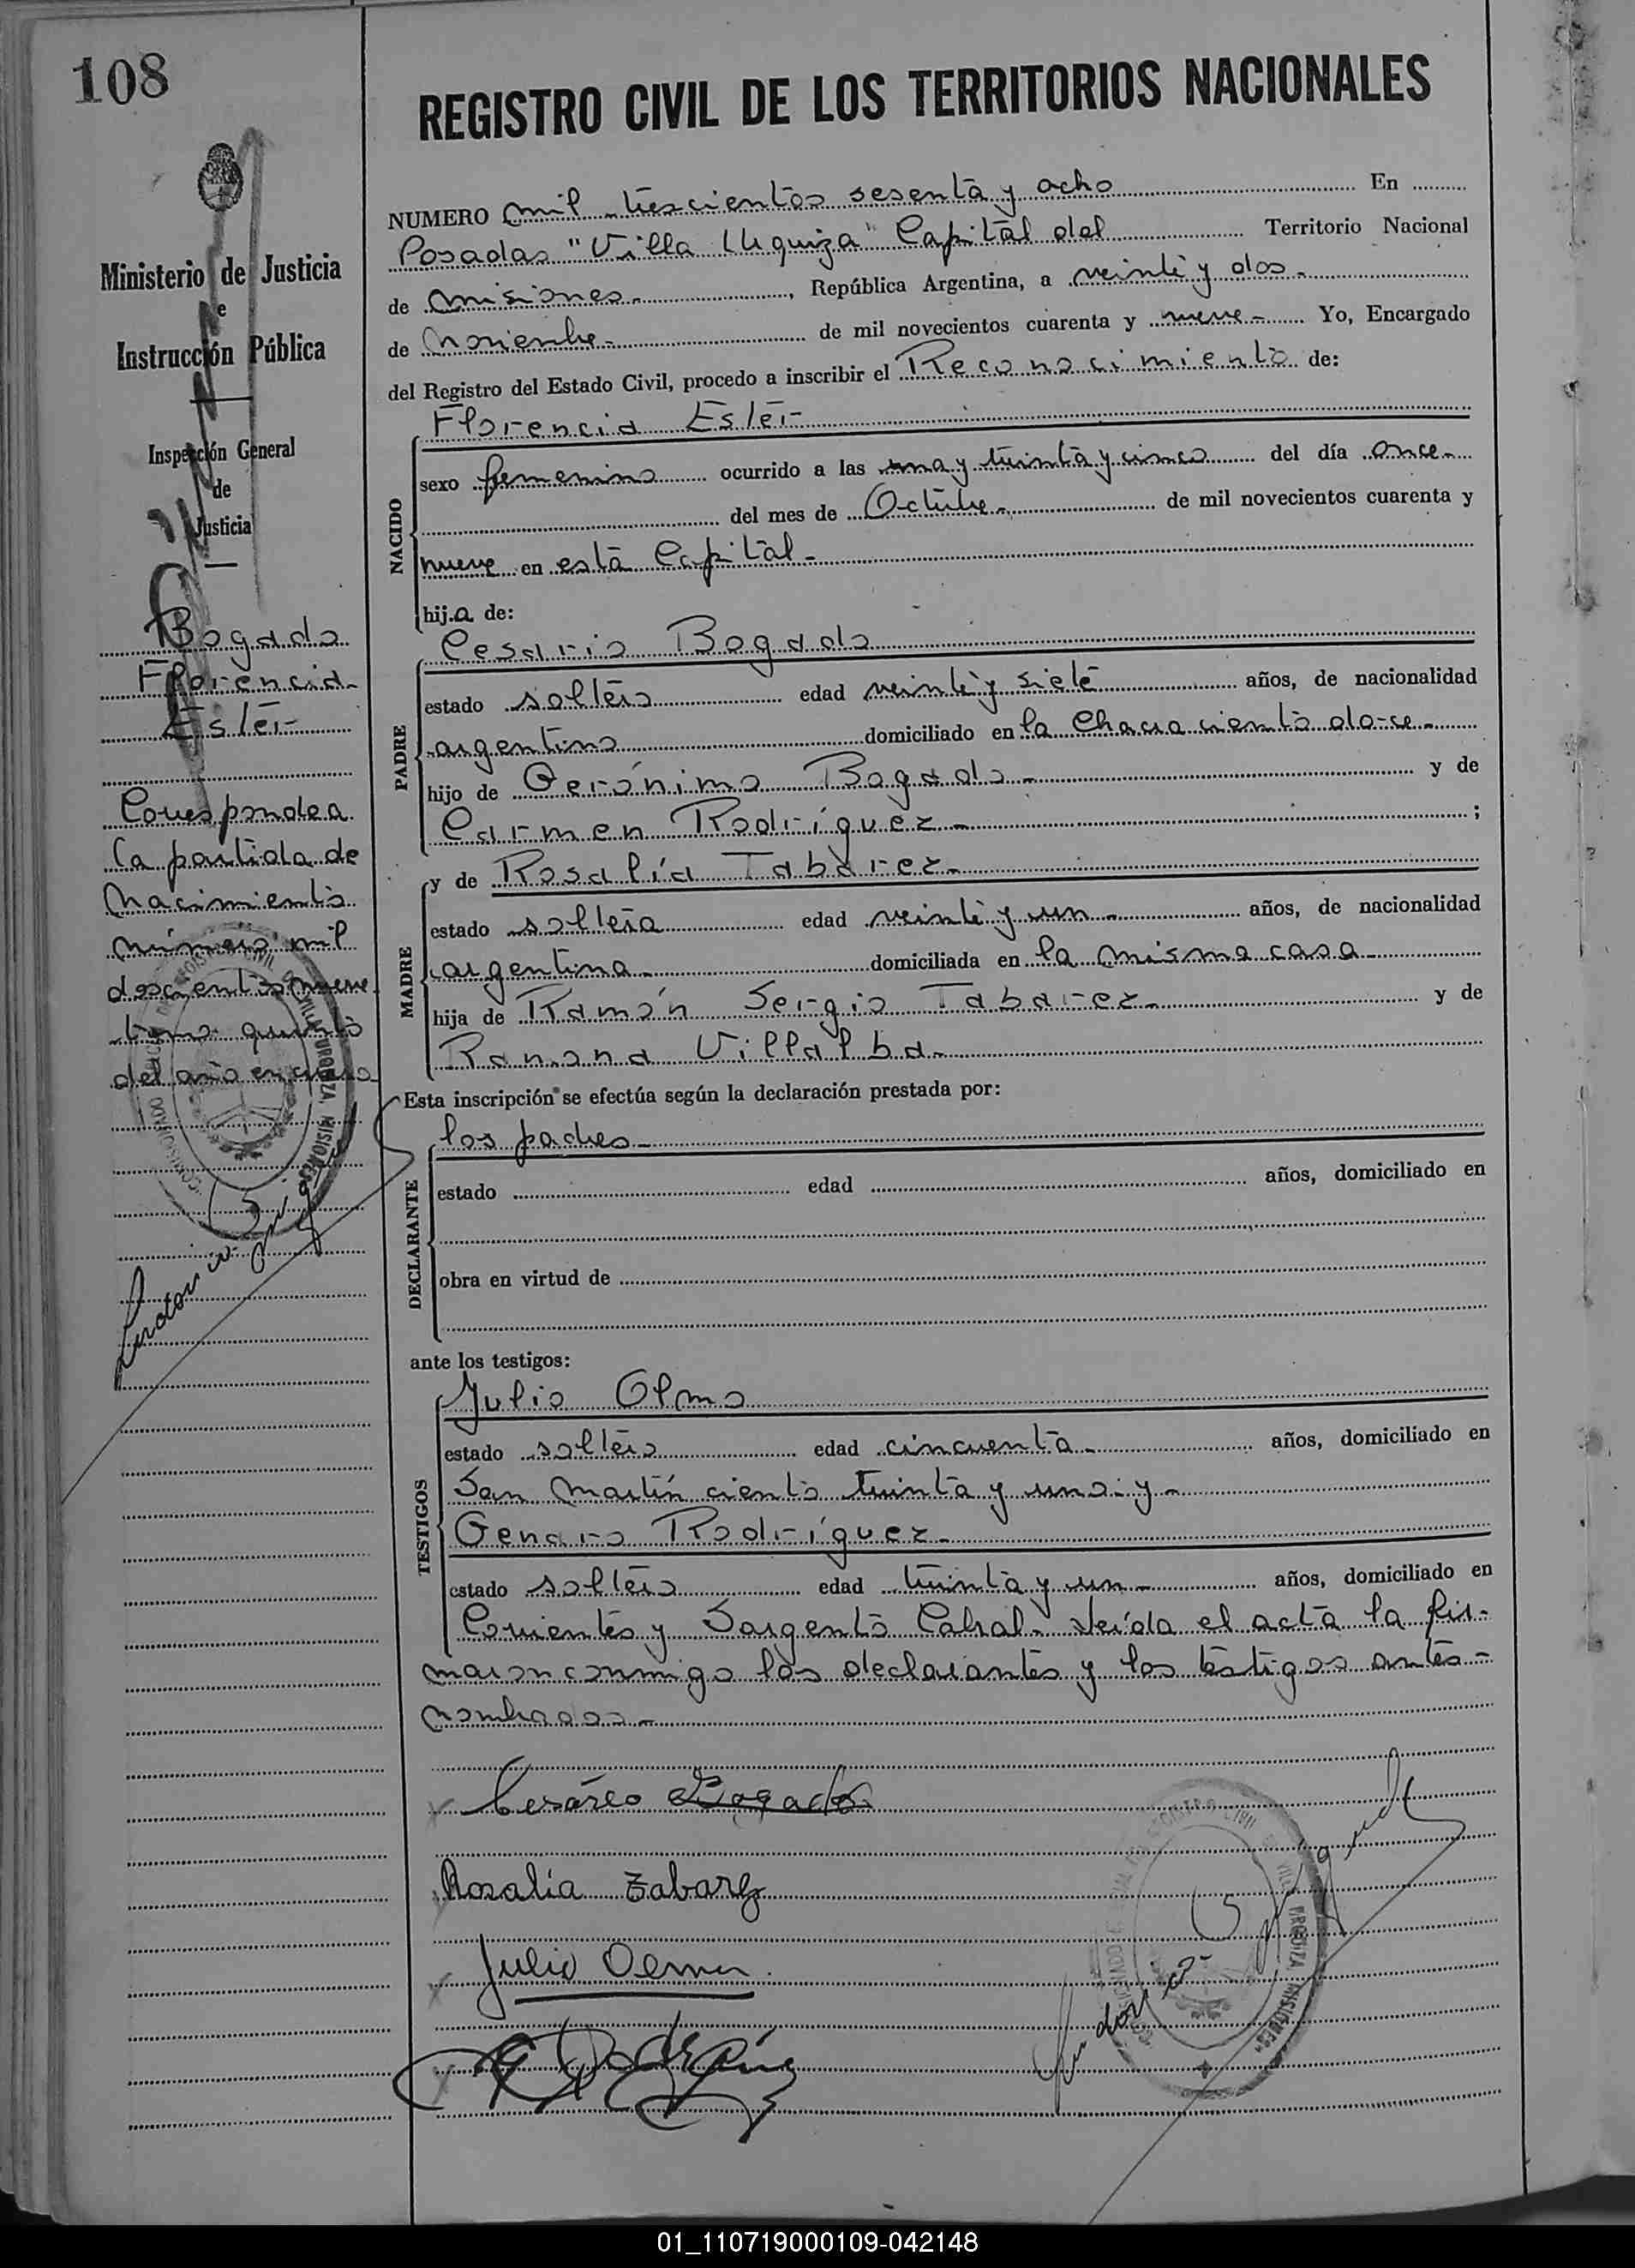 108
REGISTRO CIVIL DE LOS TERRITORIOS NACIONALES
Ministerio de Justicia
e
Instrucción Pública
Inspección General
de
Justicia
Bogado
Florencia
Ester
Corresponde a
la partida de
nacimiento
número mil
doscientos nueve
tomo quinto
del año en curso
NUMERO mil trescientos sesenta y ocho En
Posadas "Villa Urquiza" Capital del Territorio Nacional
de Misiones.-, República Argentina, a veinte y dos.-
de Noviembre.- de mil novecientos cuarenta y nueve.- Yo, Encargado
del Registro del Estado Civil, procedo a inscribir el Reconocimiento de:
Florencia Ester
NACIDO
sexo femenino ocurrido a las una y treinta y cinco del día once.-
del mes de Octubre.- de mil novecientos cuarenta y
nueve en esta Capital.-
hija de:
Cesario Bogado
PADRE
estado soltero edad veinte y siete años, de nacionalidad
argentino domiciliado en la Chacra ciento doce.-
hijo de Gerónimo Bogado.- y de
Carmen Rodríguez.- ;
MADRE
y de Rosalía Tabarez.-
estado soltera edad veinte y un.- años, de nacionalidad
argentina.- domiciliada en la misma casa.-
hija de Ramón Sergio Tabarez.- y de
Ramona Villalba.-
Esta inscripción se efectúa según la declaración prestada por:
DECLARANTE
los padres.-
estado edad años, domiciliado en
obra en virtud de
ante los testigos:
TESTIGOS
Julio Olmo
estado soltero edad cincuenta.- años, domiciliado en
San Martín ciento treinta y uno.- y.-
Genaro Rodríguez.-
estado soltero edad treinta y un.- años, domiciliado en
Corrientes y Sargento Cabral.- Leída el acta la fir-
maron conmigo los declarantes y los testigos antes-
nombrados.-
Cesáreo Bogado
Rosalia Tabarez
Julio Olmo
G Rodríguez
REGISTRO CIVIL
VILLA URQUIZA MISIONES
01_110719000109-042148